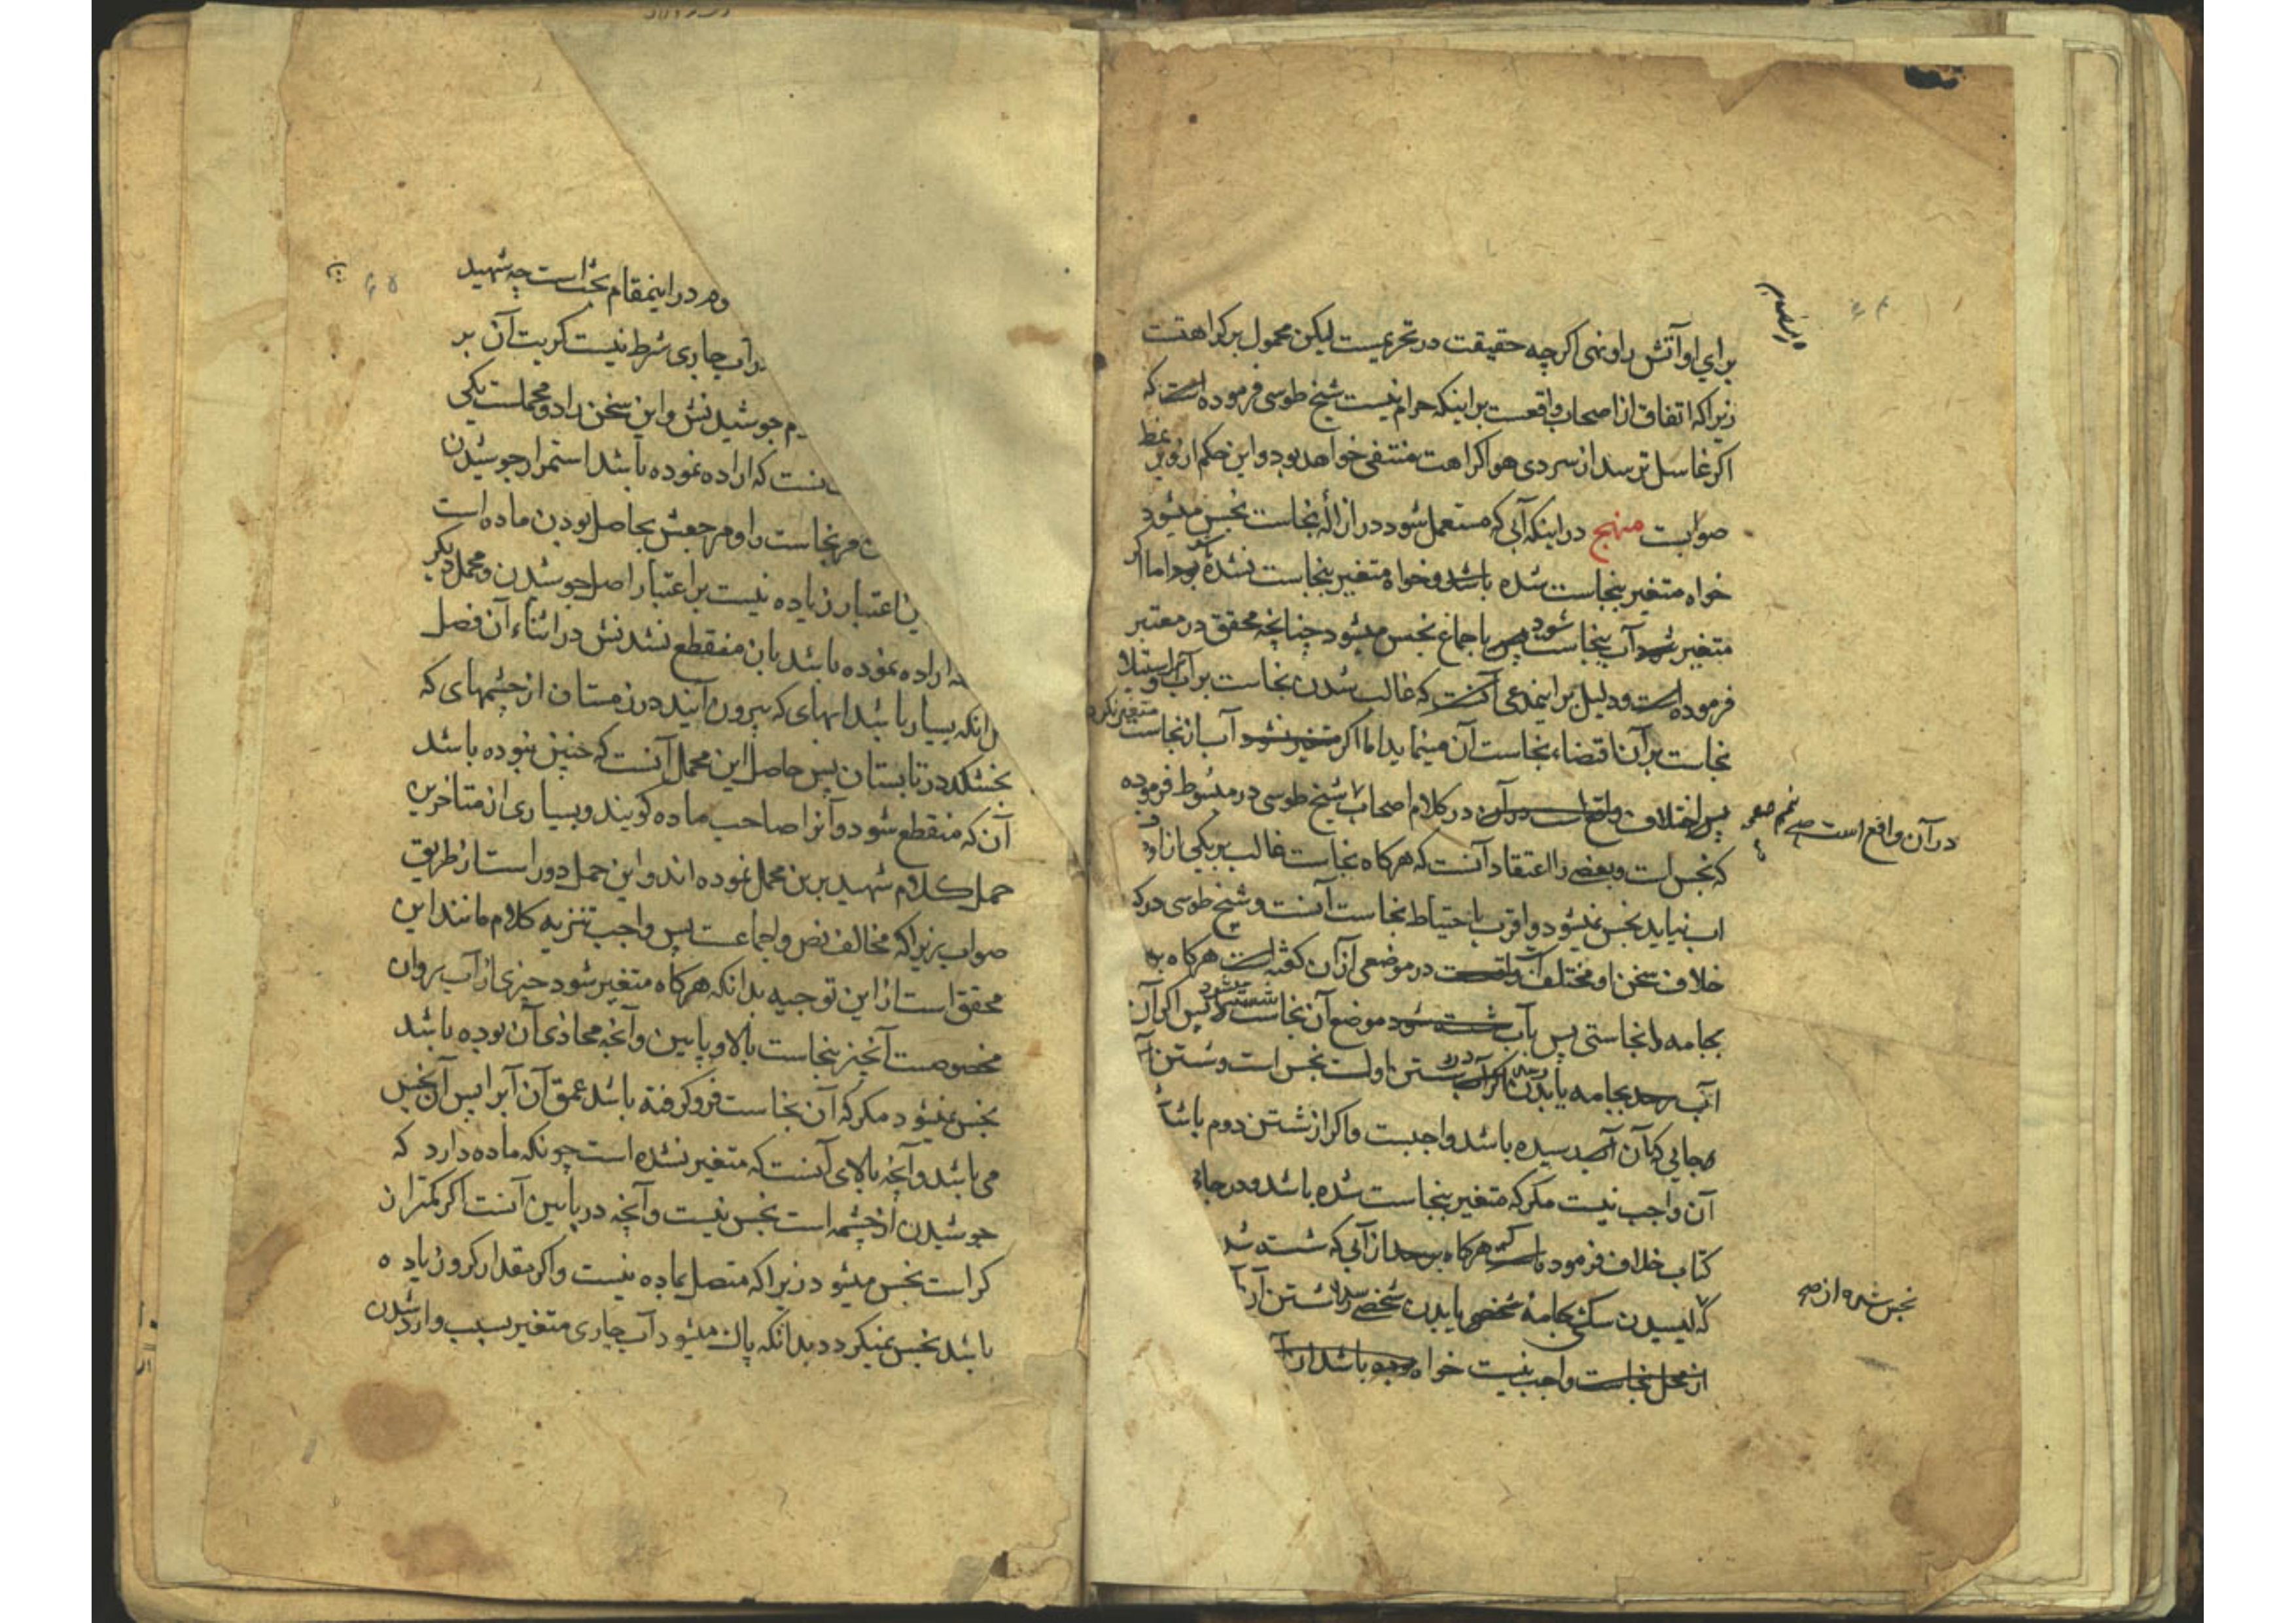 برای او آتش را و نهی اگرچه حقیقت در تحریمست لیکن محمول بر کراهتست
زیرا که اتفاق از اصحاب واقعست بر اینکه حرام نیست شیخ طوسی فرموده است که
اکر غاسل ترسد از سردی هوا کراهت منتفی خواهد بود و این حکم از
صوابست منهج در اینکه آبی که مستعمل شود در ازالهٔ نجاست نجس میشود
خواه متغیر بنجاست شده باشد و خواه متغیر بنجاست نشده بود اما اکر
متغیر شود آب بنجاست پس باجماع نجس میشود چنانچه محقق در معتبر
فرموده است و دلیل بر اینمدعی آنست که غالب شدن نجاست بر آب و استیلاء
نجاست بر آن اقتضاء نجاست آن مینماید اما اکر متغیر نشود آب از نجاست
متغیر نکرد
پس اختلاف واقع است در آن در کلام اصحاب شیخ طوسی در مبسوط فرموده
در آن واقع است
که نجس است و بعضی را اعتقاد آنست که هرکاه نجاست غالب بر یکی از او
اب نیاید نجس نمیشود و اقرب باحتیاط نجاست آنست و شیخ طوسی در ک
خلاف سخن او مختلف در موضعی از آن کفته است هرکاه
بجامه نجاستی پس بآب شسته شود موضع آن نجاست پس اکر آن
آب بجامه یا بدن شستن اولست نجس است و شستن
جایی که آن رسیده باشد واجبست و اکر از شستن دوم باشد
آن واجب نیست مکر که متغیر بنجاست شده باشد و در جای
کتاب خلاف فرموده است که هرکاه برسد از آبی که شسته شد
که لیسیدن سک بجامهٔ شخصی یا بدن شخصی شستن آن
نجس شده از
از محل نجاست واجب نیست خواه بوده باشد از
وم در اینمقام بحث است چه شهید
در آب جاری شرط نیست کریت آن بر
جوشیدنش و این سخن را دو محملست یکی
نست که اراده نموده باشد استمرار جوشیدن
مر نجاست را و مرجعش بحاصل بودن ماده است
ین اعتبار زیاده نیست بر اعتبار اصل جوشیدن و محمل دیکر
اراده نموده باشد بآن منقطع نشدنش در اثناء آن فصل
انکه بسیار باشید ابهای که بیرون آیند در زمستان از چشمهای که
بخشکد در تابستان پس حاصل این محمل آنست که چنین نبوده باشد
آن که منقطع شود و آنرا صاحب ماده کویند و بسیاری از متاخرین
حمل کلام شهید برین محمل نموده اند و این حمل دور است از طریق
صواب زیرا که مخالف نص و اجماعست پس واجب تنزیه کلام مانند این
محقق است از این توجیه بدانکه هرکاه متغیر شود چیزی از آب روان
مخصوصست آنچیز بنجاست بالا و پایین و آنچه محاذی آن بوده باشد
نجس نمیشود مکر که آن نجاست فرو کرفته باشد عمق آن آبرا پس آن نجس
می باشد و آنچه بالای آنست که متغیر نشده است چونکه ماده دارد که
جوشیدن از چشمه است نجس نیست و آنچه در پایین آنست اکر کمتر از
کر است نجس میشود زیرا که متصل بماده نیست و اکر مقدار کر و زیاده
باشد نجس نمیکردد بدانکه پاک میشود آب جاری متغیر بسبب وارد شدن